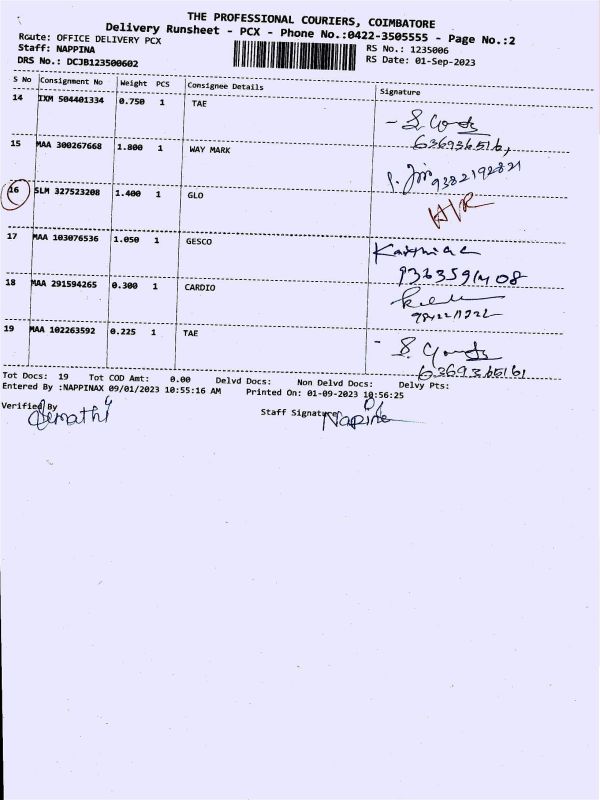 THE PROFESSIONAL COURIERS, COIMBATORE
Delivery Runsheet - PCX - Phone No.:0422-3505555 - Page No.:2
Route: OFFICE DELIVERY PCX
RS No.: 1235006
Staff: NAPPINA
RS Date: 01-Sep-2023
DRS No.: DCJB123500602
S No Consignment No Weight PCS Consignee Details Signature
14 IXM 504401334 0.750 1 TAE
15 MAA 300267668 1.800 1 WAY MARK
9382192821
16 SLM 327523208 1.400 1 GLO
17 MAA 103076536 1.050 1 GESCO
18 MAA 291594265 0.300 1 CARDIO
19 MAA 102263592 0.225 1 TAE
Tot Docs: 19 Tot COD Amt: 0.00 Delvd Docs: Non Delvd Docs: Delvy Pts:
Entered By :NAPPINAX 09/01/2023 10:55:16 AM Printed On: 01-09-2023 10:56:25
Verified By
Staff Signature